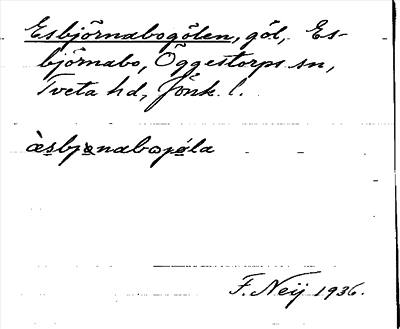 Esbjörnabogölen, göl, Es-
björnabo, Öggestorps sn,
Tveta hd, Jönk. l.
F. Neij 1936.